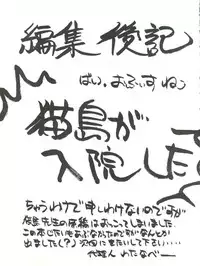 編集後記
ばい。おふぃすねこ
猫島が
入院した
ちゅうわけで申しわけないのですが
先生の原稿はおっこってしまいました
この本じたいもあぶなかったのですがなんとか
出ました(?)次回に期待して下さい……
代理人 わたなべー